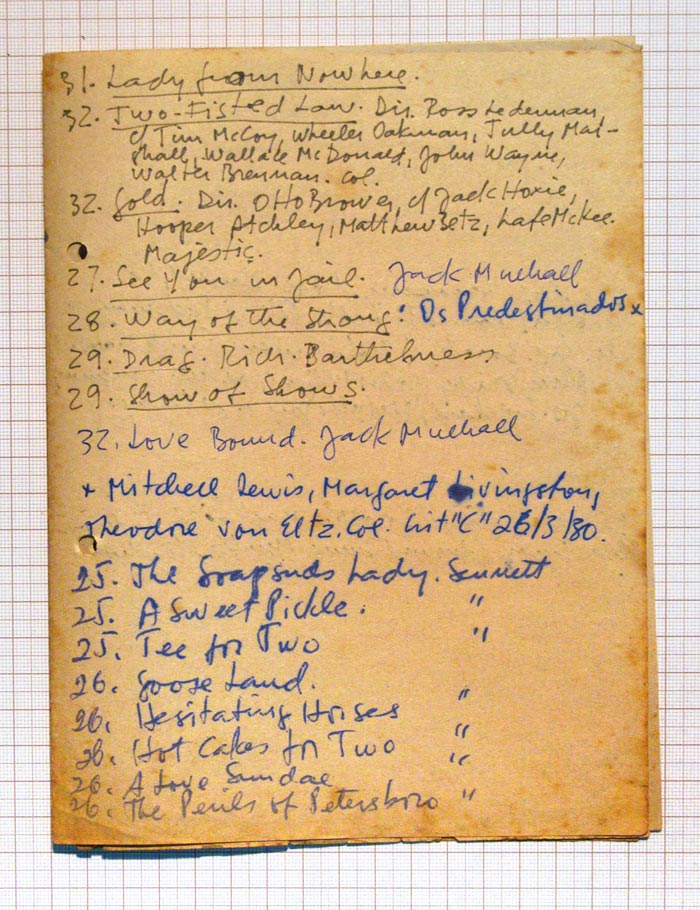 31. Lady from Nowhere.
32. Two-Fisted Law. Dir. Ross Lederman,
c/ Tim McCoy, Wheeler Oakman, Tully Mar-
shall, Wallace McDonald, John Wayne,
Walter Brennan. Col.
32. Gold. Dir. Otto Brower, c/ Jack Hoxie,
Hooper Atchley, Matthew Betz, Lafe McKee.
Majestic.
27. See You in Jail. Jack Mulhall
28. Way of the Strong: Os Predestinados x
29. Drag. Rich. Barthelmess
29. Show of Shows.
32. Love Bound. Jack Mulhall
x Mitchell Lewis, Margaret Livingston,
Theodore von Eltz. Col. "C" 26/3/30.
25. The Soapsuds Lady. Sennett
25. A Sweet Pickle. "
25. Tee for Two "
26. Goose Land. "
26. Hesitating Horses "
26. Hot Cakes for Two "
26. A Love Sundae
26. The Perils of Petersboro "